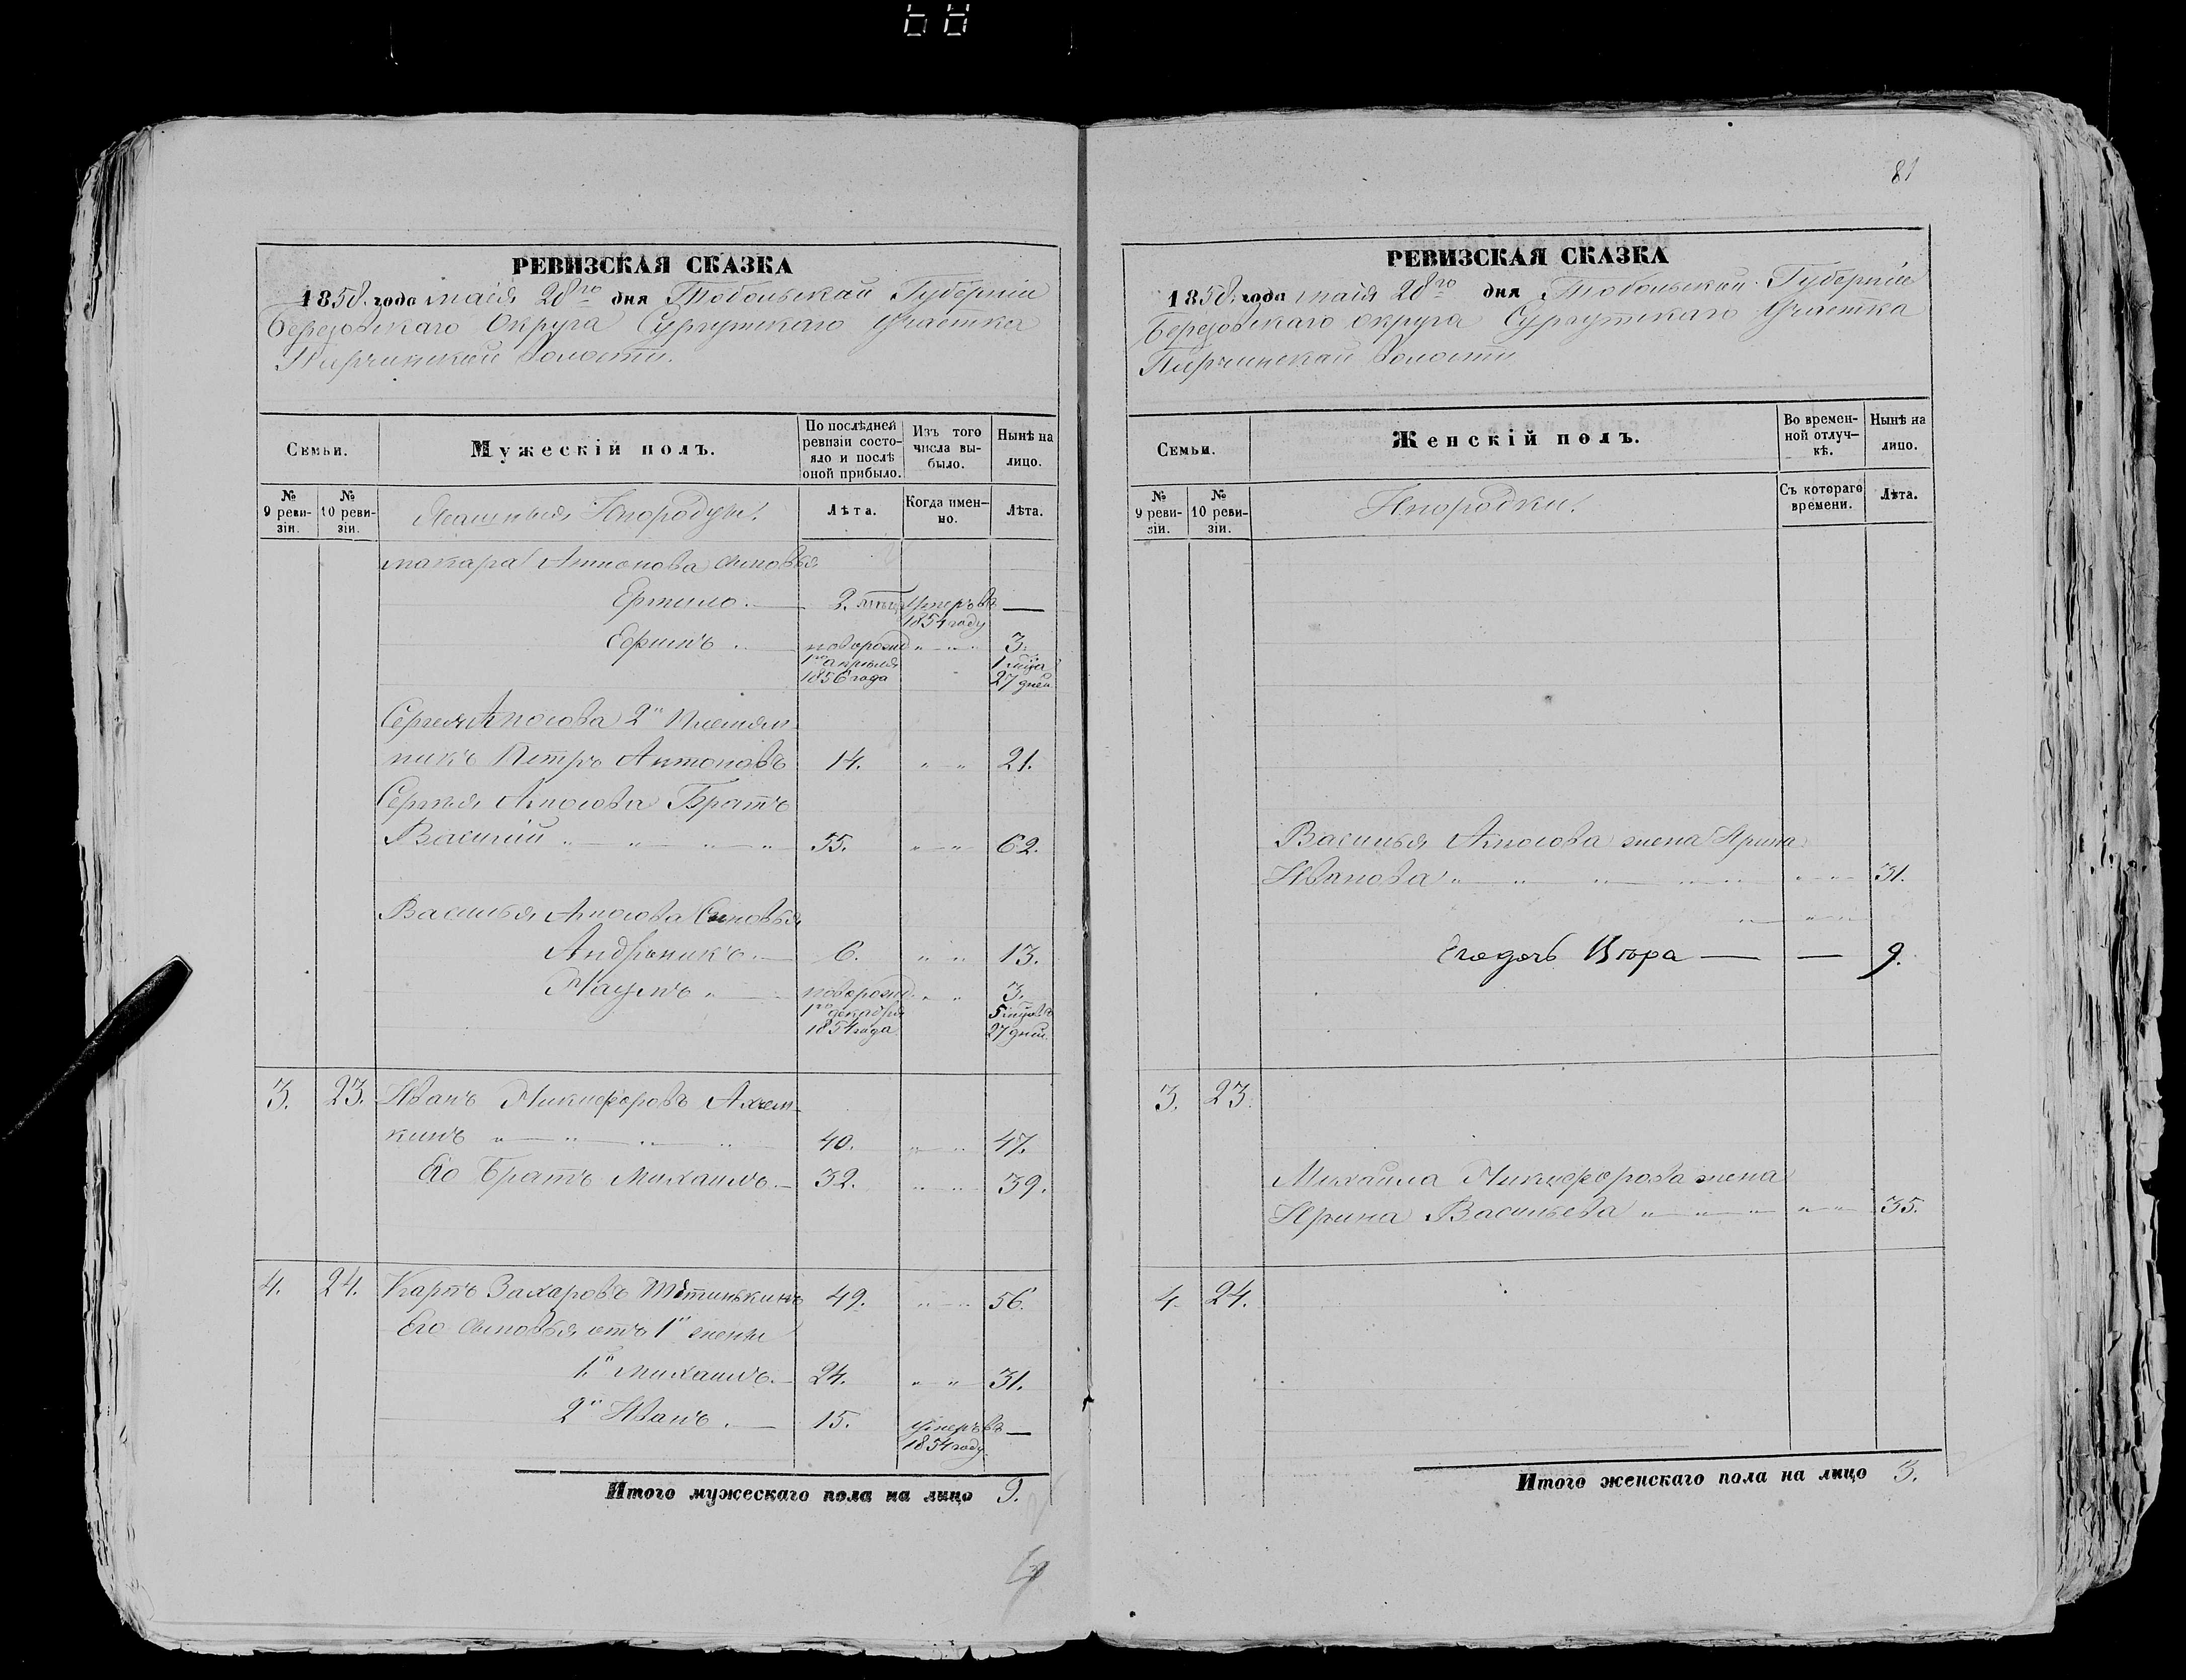 81
РЕВИЗСКАЯ СКАЗКА
1858. года маія 28го дня Тобольской Губерніи
Березовскаго Округа Сургутскаго Участка
Пирчинской Волости.
Семьи.
Мужескій полъ.
По послѣдней ревизіи состояло и послѣ оной прибыло.
Изъ того числа выбыло.
Нынѣ на лицо.
№ 9 ревизіи.
№ 10 ревизіи.
Ясашныя Инородцы.
Лѣта.
Когда именно.
Лѣта.
Макара Антонова сыновья
Ермило. 2. умеръ въ 1854 году —
Ефимъ новорожд 1го апреля 1856 года " " 3.
27 дней
2й племян-
никъ Петръ Антоновъ 14. " " 21.
Братъ
Василий 55. " " 62.
Василья Сыновья
Андроникъ. 6. " " 13.
Наумъ новорожд. 1го декабря 1854 года " " 3. 5 27 дней
3. 23. Иванъ Никифоровъ
кинъ 40. " " 47.
Его Братъ Михаилъ. 32. " " 39.
4. 24. Карпъ Захаровъ 49. " " 56.
Его сыновья отъ 1й жены
1й Михаилъ. 24. " " 31.
2й Иванъ. 15. умеръ въ 1854 году —
Итого мужескаго пола на лицо 9.
РЕВИЗСКАЯ СКАЗКА
1858. года маія 28го дня Тобольской Губерніи
Березовскаго округа Сургутскаго Участка
Пирчинской Волости
Семьи.
Женскій полъ.
Во временной отлучкѣ.
Нынѣ на лицо.
№ 9 ревизіи.
№ 10 ревизіи.
Инородки.
Съ котораго времени.
Лѣта.
Василья жена Ирина
Иванова " " 31.
Его дочь — — 9.
3. 23.
Михаила Никифорова жена
Ирина Васильева " " 35.
4. 24.
Итого женскаго пола на лицо 3.